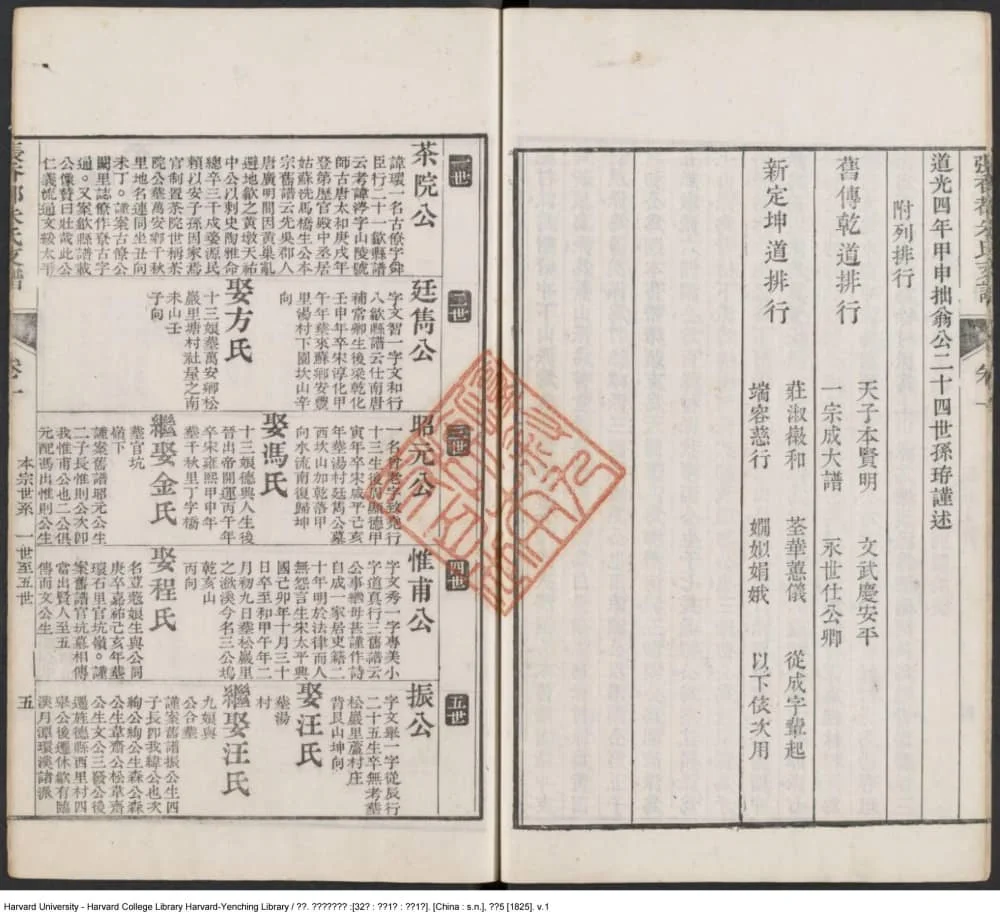 道光四年甲申拙翁公二十四世孫珔謹述
附列排行
舊傳乾道排行
天子本賢明 文武慶安平
一宗成大譜 永世仕公卿
新定坤道排行
莊淑徽和 荃華蕙儀 從成字輩起
端容慈行 嫺姒娟娥 以下依次用
一世
茶院公
諱瓌一名古僚字舜
臣行二十一歙縣譜
師古唐太和庚戌年
登第歷官殿中丞居
姑蘇洗馬橋生公本
宗舊譜云先吳郡人
唐廣明間因黃巢亂
避地歙之黃墩天祐
中公以刺史陶雅命
總卒三千戍婺源民
賴以安子孫因家焉
官制置茶院世稱茶
院公葬萬安鄉千秋
里地名連同坐丑向
二世
廷雋公
字文智一字文和行
八歙縣譜云仕南唐
補常卿生後梁乾化
壬申年卒宋淳化甲
午年葬來蘇鄉安豐
里湯村下園坎山辛
向
娶方氏
十三娘葬萬安鄉松
巖里塘村社屋之南
未山壬
子向
三世
昭元公
寅年卒宋咸平己亥
年葬湯村廷雋公墓
西坎山加乾落甲
向水流南復歸坤
娶馮氏
十三娘德興人生後
晉出帝開運丙午年
卒宋雍熙甲申年
葬千秋里丁字橋
繼娶金氏
墓官坑
嶺下
謹案舊譜昭元公生
二子長惟則公次卽
我惟甫公也二公俱
元配馮出惟則公生
四世
惟甫公
字文秀一字專美小
字道真行三舊譜云
公事繼母甚謹作詩
自成一家居史籍二
十年明於法律而人
無怨言生宋太平興
國己卯年十月三十
日卒至和甲午年二
月初九日葬松巖里
之湫溪今名三公塢
乾亥山
丙向
娶程氏
名荳蔻娘生與公同
庚卒嘉祐己亥年葬
環石里官坑嶺。謹
案舊譜官坑墓相傳
當出賢人至五
傳而文公生
五世
振公
字文舉一字從辰行
二十五生卒無考葬
松巖里蘆村庄
背艮山坤向
娶汪氏
葬湯
村
繼娶汪氏
九娘與
公合葬
謹案舊譜振公生四
子長郎我緯公也次
絢公絢公生森公森
公生韋齋公松韋齋
公生文公三發公後
遷旌德縣西里村四
舉公後遷休歙有臨
溪月潭環溪諸派
本宗世系 一世至五世
五
Harvard University - Harvard College Library Harvard-Yenching Library / ??. ??????? :[32? : ??1? : ??1?]. [China : s.n.], ??5 [1825]. v.1